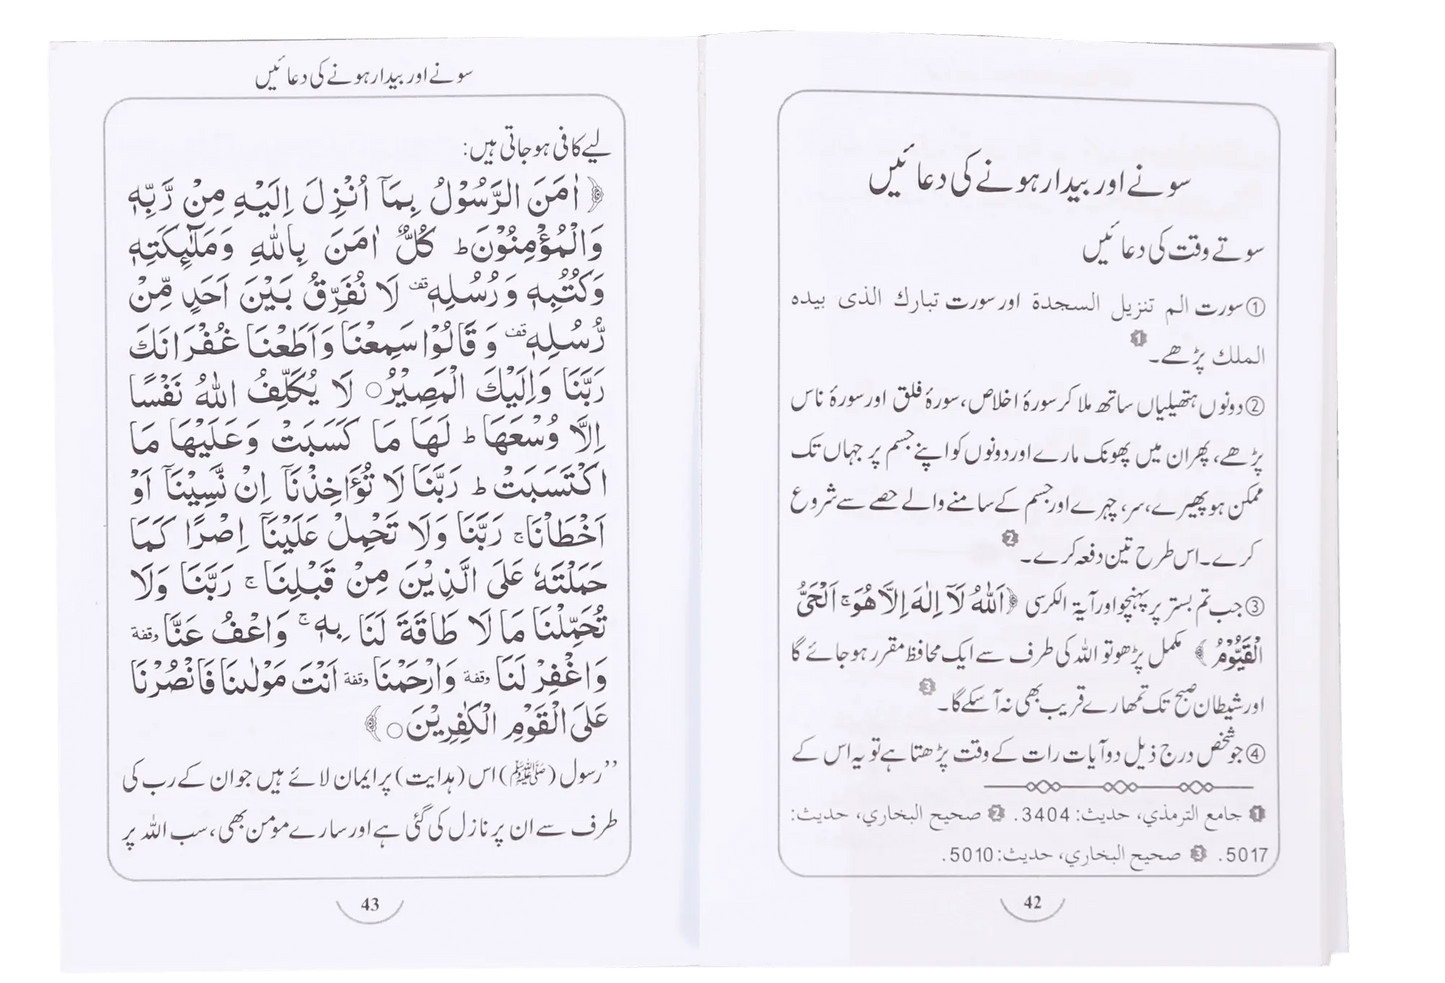 سونے اور بیدار ہونے کی دعائیں
سوتے وقت کی دعائیں
①سورت الم تنزیل السجدة اور سورت تبارك الذی بیده
الملك پڑھے۔❶
②دونوں ہتھیلیاں ساتھ ملا کر سورۂ اخلاص، سورۂ فلق اور سورۂ ناس
پڑھے، پھر ان میں پھونک مارے اور دونوں کو اپنے جسم پر جہاں تک
ممکن ہو پھیرے، سر، چہرے اور جسم کے سامنے والے حصے سے شروع
کرے۔ اس طرح تین دفعہ کرے۔❷
③جب تم بستر پر پہنچو اور آیۃ الکرسی ﴿اَللّٰهُ لَآ اِلٰهَ اِلَّا هُوَ ۚ اَلْحَيُّ
الْقَيُّوْمُ﴾ مکمل پڑھو تو اللہ کی طرف سے ایک محافظ مقرر ہو جائے گا
اور شیطان صبح تک تمھارے قریب بھی نہ آ سکے گا۔❸
④جو شخص درج ذیل دو آیات رات کے وقت پڑھتا ہے تو یہ اس کے
❶ جامع الترمذي، حدیث: 3404. ❷ صحیح البخاري، حدیث:
5017. ❸ صحیح البخاري، حدیث: 5010.
42
سونے اور بیدار ہونے کی دعائیں
لیے کافی ہو جاتی ہیں:
﴿اٰمَنَ الرَّسُوْلُ بِمَآ اُنْزِلَ اِلَيْهِ مِنْ رَّبِّهٖ
وَالْمُؤْمِنُوْنَ ؕ كُلٌّ اٰمَنَ بِاللّٰهِ وَمَلٰٓىِٕكَتِهٖ
وَكُتُبِهٖ وَرُسُلِهٖ ۫ لَا نُفَرِّقُ بَيْنَ اَحَدٍ مِّنْ
رُّسُلِهٖ ۫ وَقَالُوْا سَمِعْنَا وَاَطَعْنَا غُفْرَانَكَ
رَبَّنَا وَاِلَيْكَ الْمَصِيْرُ○ لَا يُكَلِّفُ اللّٰهُ نَفْسًا
اِلَّا وُسْعَهَا ؕ لَهَا مَا كَسَبَتْ وَعَلَيْهَا مَا
اكْتَسَبَتْ ؕ رَبَّنَا لَا تُؤَاخِذْنَآ اِنْ نَّسِيْنَآ اَوْ
اَخْطَاْنَا ۚ رَبَّنَا وَلَا تَحْمِلْ عَلَيْنَآ اِصْرًا كَمَا
حَمَلْتَهٗ عَلَى الَّذِيْنَ مِنْ قَبْلِنَا ۚ رَبَّنَا وَلَا
تُحَمِّلْنَا مَا لَا طَاقَةَ لَنَا بِهٖ ۚ وَاعْفُ عَنَّا وقفة
وَاغْفِرْ لَنَا وقفة وَارْحَمْنَا وقفة اَنْتَ مَوْلٰىنَا فَانْصُرْنَا
عَلَى الْقَوْمِ الْكٰفِرِيْنَ○﴾
’’رسول (ﷺ) اس (ہدایت) پر ایمان لائے ہیں جو ان کے رب کی
طرف سے ان پر نازل کی گئی ہے اور سارے مومن بھی، سب اللہ پر
43